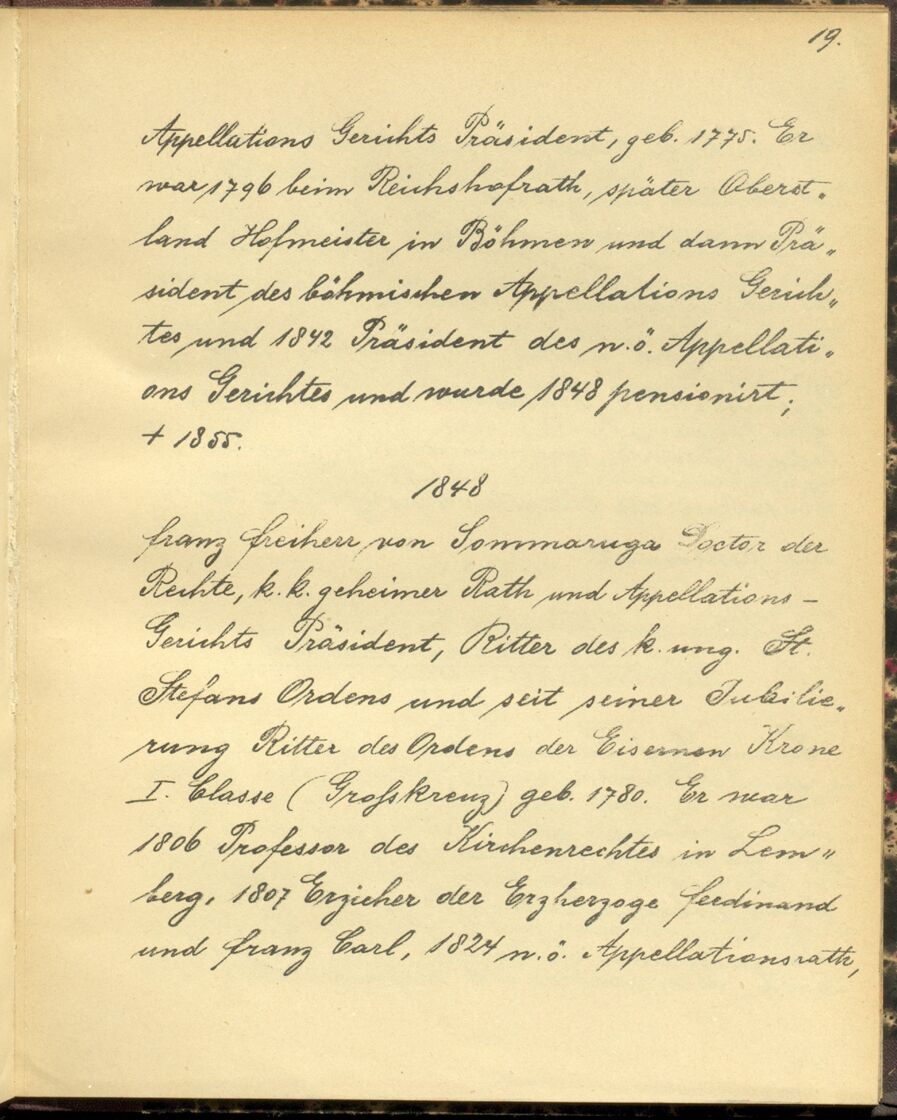 19.
Appellations Gerichts Präsident, geb. 1775. Er
war 1796 beim Reichshofrath, später Oberst„
land Hofmeister in Böhmen und dann Prä„
sident des böhmischen Appellations Gerich„
tes und 1842 Präsident des n.ö. Appellati„
ons Gerichtes und wurde 1848 pensionirt;
+ 1855.
1848
Franz Freiherr von Sommaruga Doctor der
Rechte, k. k. geheimer Rath und Appellations-
Gerichts Präsident, Ritter des k. ung. St.
Stefans Ordens und seit seiner Jubilie„
rung Ritter des Ordens der Eisernen Krone
I. Classe (Großkreuz) geb. 1780. Er war
1806 Professor des Kirchenrechtes in Lem„
berg, 1807 Erzieher der Erzherzoge Ferdinand
und Franz Carl, 1824 n.ö. Appellationsrath,